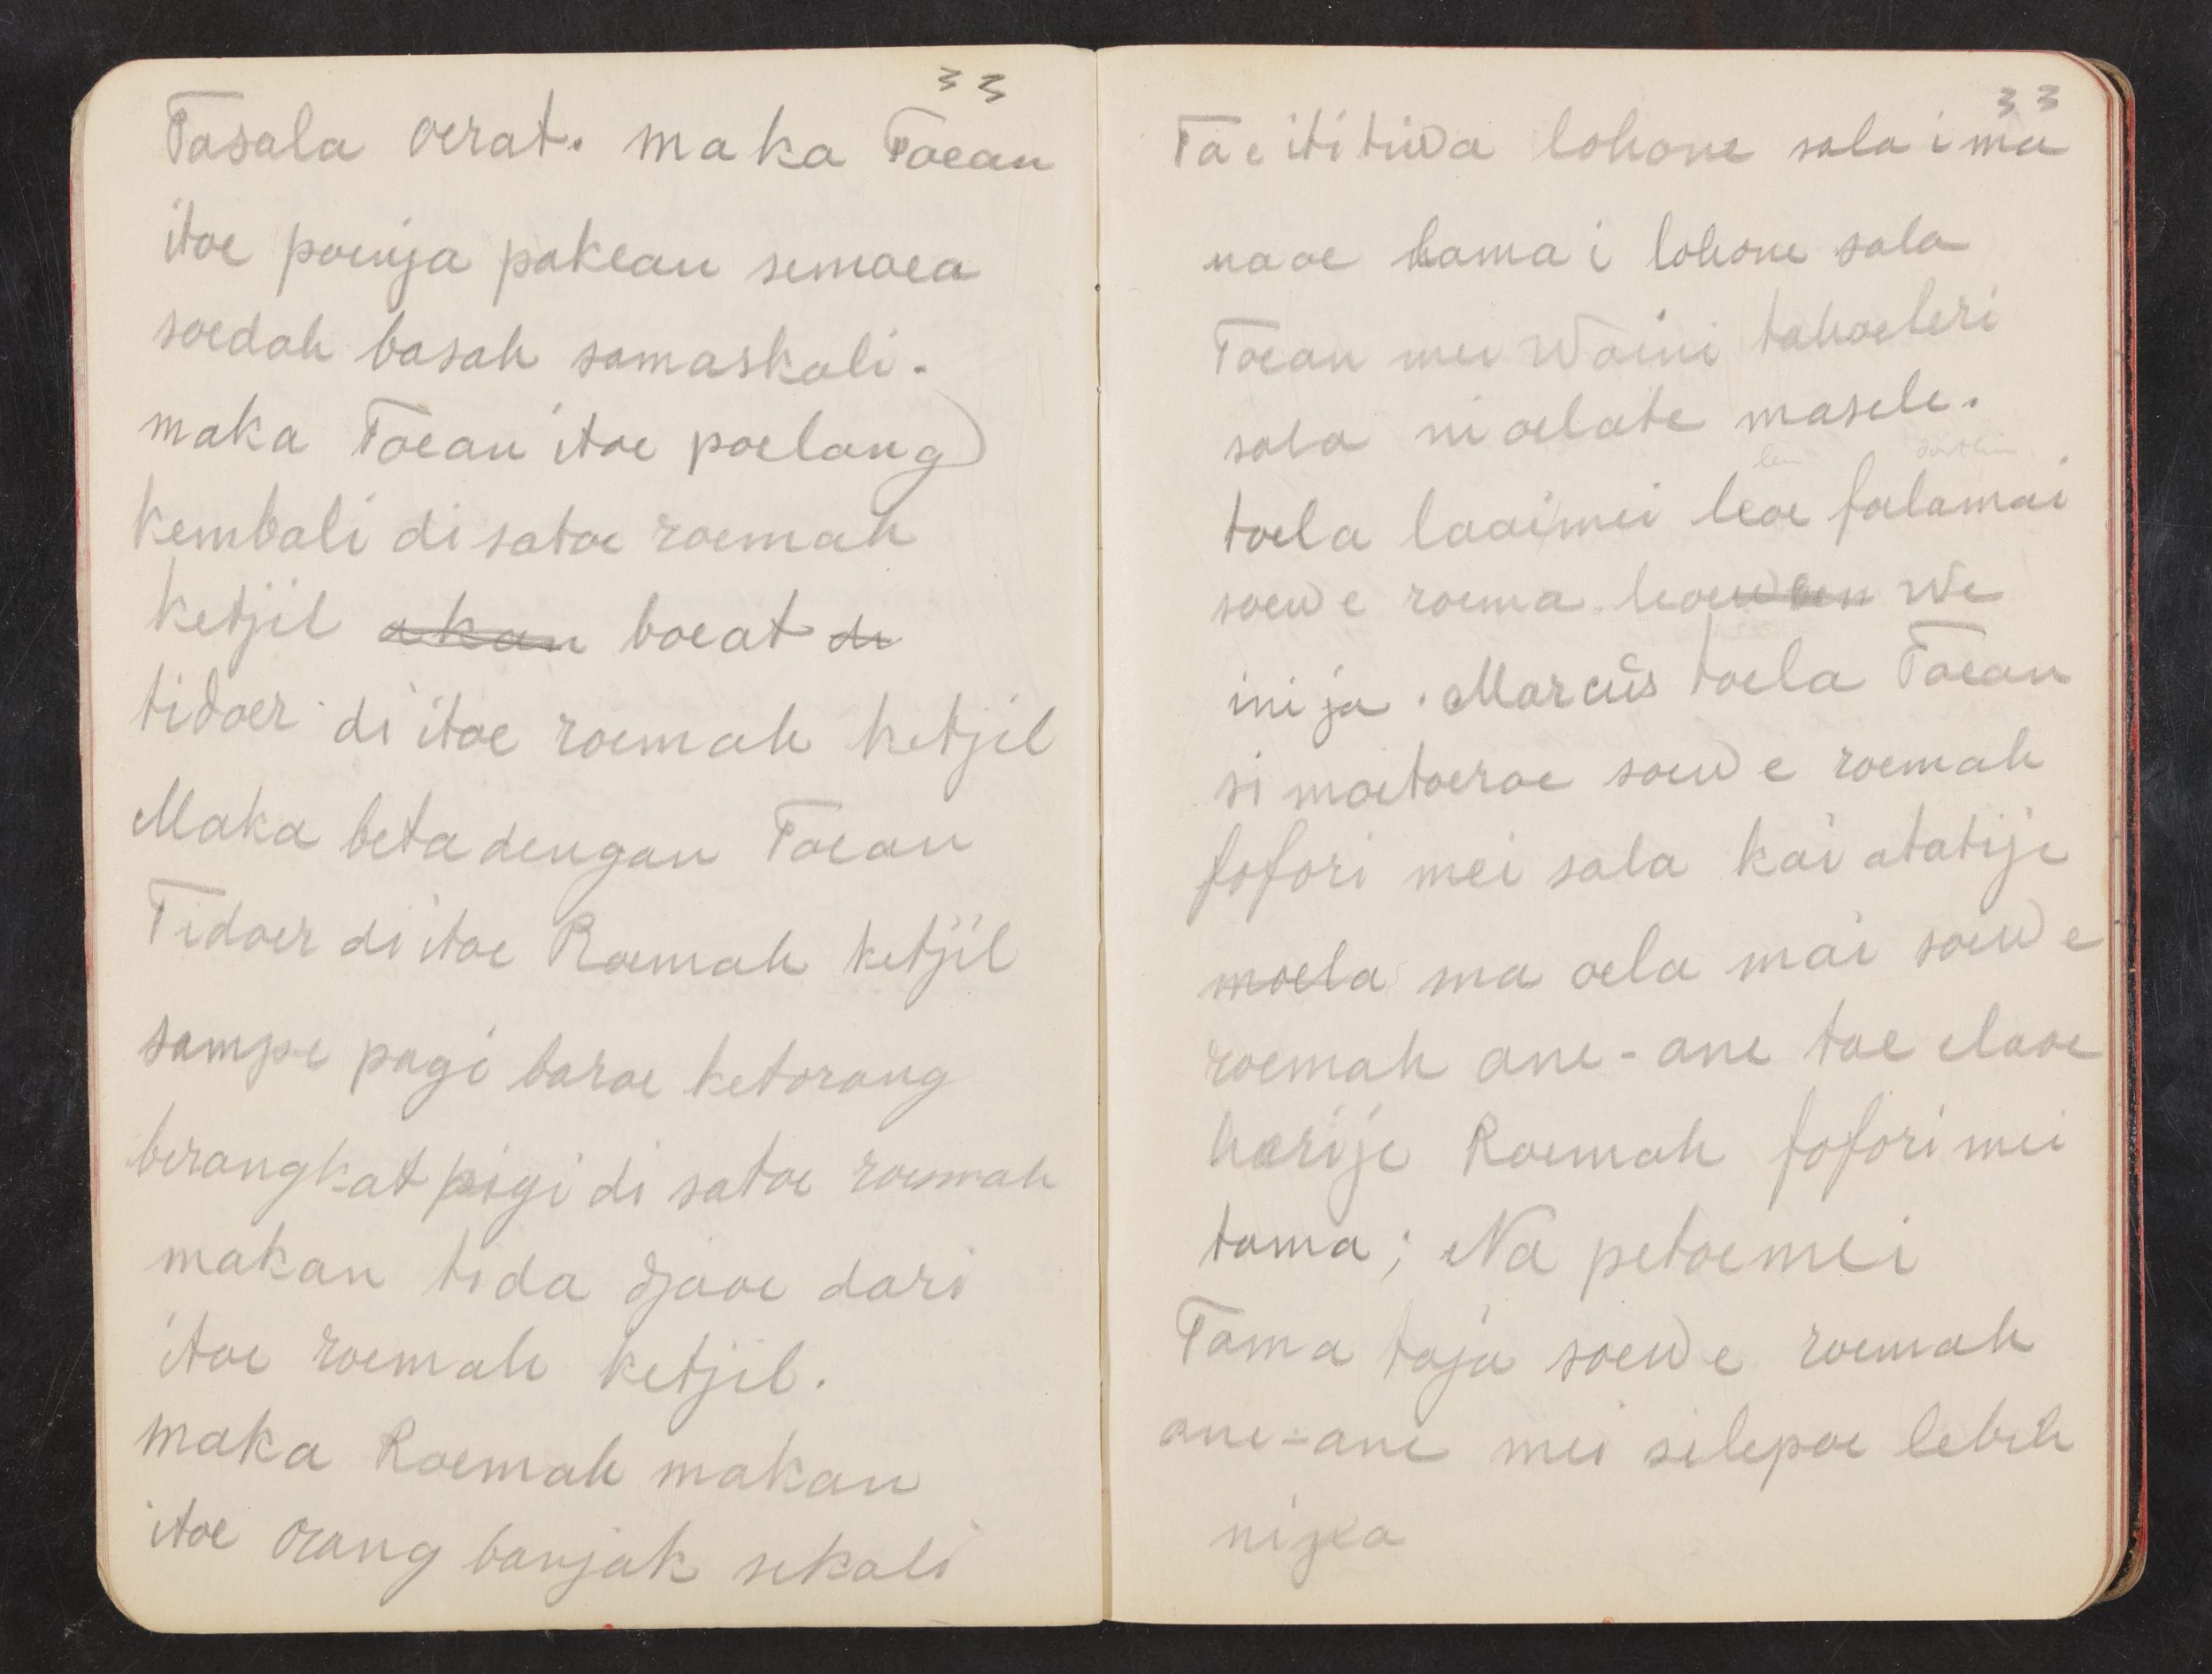 33
Tasala oerat. maka Toean
itoe poenja pakean semoea
soedah basah samaskali.
maka Toean itoe poelang
kembali di satoe roemah
ketjil akan boeat di
tidoer di itoe roemah ketjil
Maka beta dengan Toean
Tidoer di itoe Roemah ketjil
sampe pagi baroe ketorang
berangkat pigi di satoe roemah
makan tida djaoe dari
itoe roemah ketjil.
maka Roemah makan
itoe orang banjak sekali
33
Toe iti tiwa lohone sala i ma
naoe hama i lohone sala
Toean mei Waini tahoeleri
sala ni oelate masele.
toela laai mei leoe falamai
soew e roema We
ini ja. Marcus toela Toean
si moetoeroe soew e roemah
fofori mei sala kai atatije
moela ma oela mai soew e
roemah ane-ane toe elaoe
harije Roemah fofori mei
toma; Na petoemei
Toma toja soew e roemah
ane-ane mei silepoe lebih